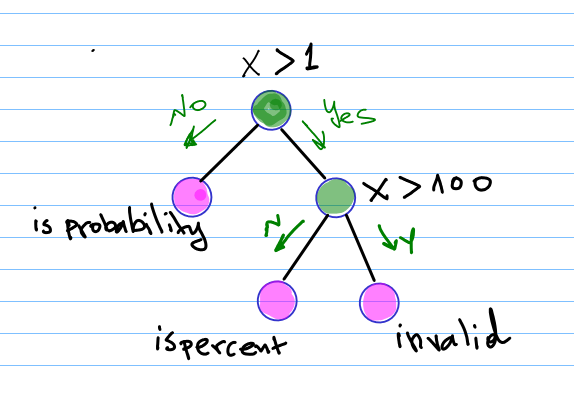 X > 1
No
Yes
X > 100
is probability
N
Y
ispercent
invalid